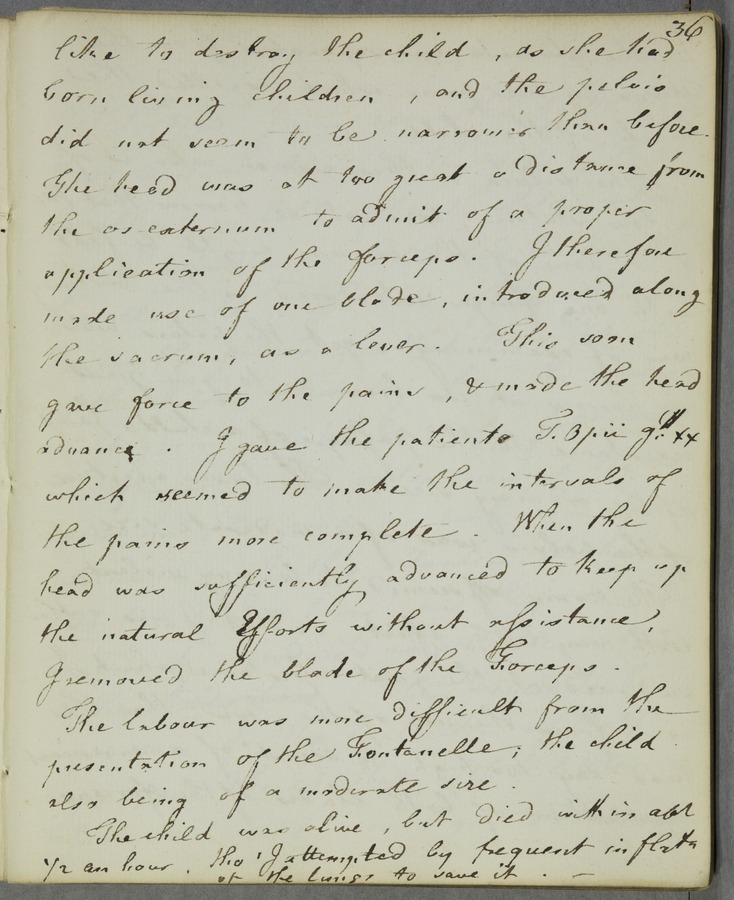 36
like to destroy the child, as she had
born living children, and the pelvis
did not seem to be narrower than before.
The head was at too great a distance from
the os externum to admit of a proper
application of the forceps. I therefore
made use of one blade, introduced along
the sacrum, as a lever. This soon
gave force to the pains, & made the head
advance. I gave the patient T. Opii gtt xx
which seemed to make the intervals of
the pains more complete. When the
head was sufficiently advanced to keep up
the natural Efforts without assistance,
I removed the blade of the Forceps.
The labour was more difficult from the
presentation of the Fontanelle; the child
also being of a moderate size.
The child was alive, but died within abt
1/2 an hour. tho' I attempted by frequent inflatn
of the lungs to save it. —